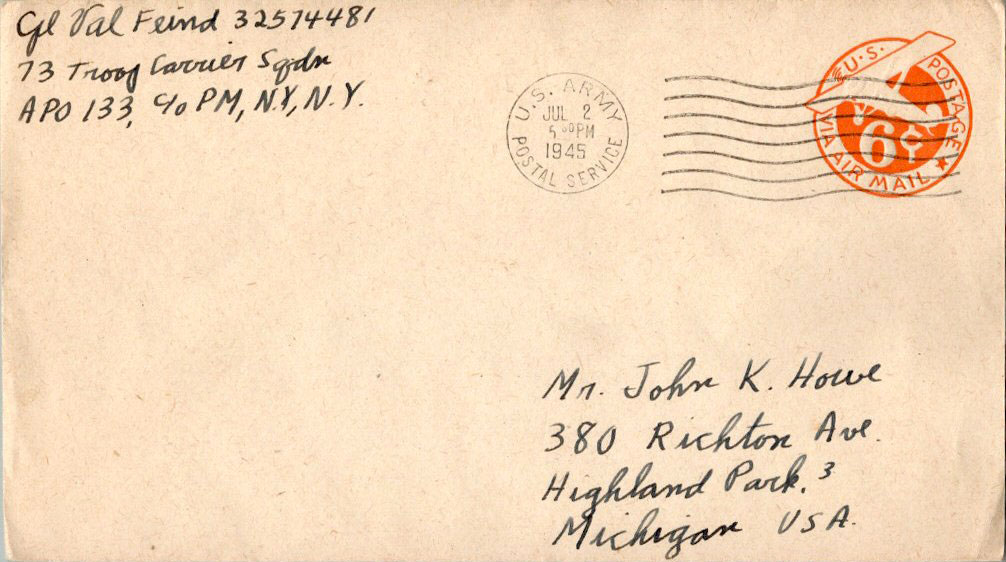 Cpl Val Feind 32574481
73 Troop Carrier Sqdn
APO 133, c/o PM, N.Y, N.Y.
U.S. ARMY
JUL 2
5 00 PM
1945
POSTAL SERVICE
U.S. POSTAGE
6¢
VIA AIR MAIL
Mr. John K. Howe
380 Richton Ave.
Highland Park, 3
Michigan USA.